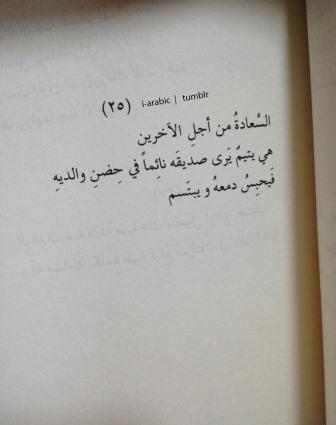 (٢٥) i-arabic | tumblr
السَّعادةُ من أجلِ الآخرين
هي يتيمٌ يَرى صديقَه نائِماً في حِضنِ والديهِ
فَيحبِسُ دمعهُ و يبتَسم